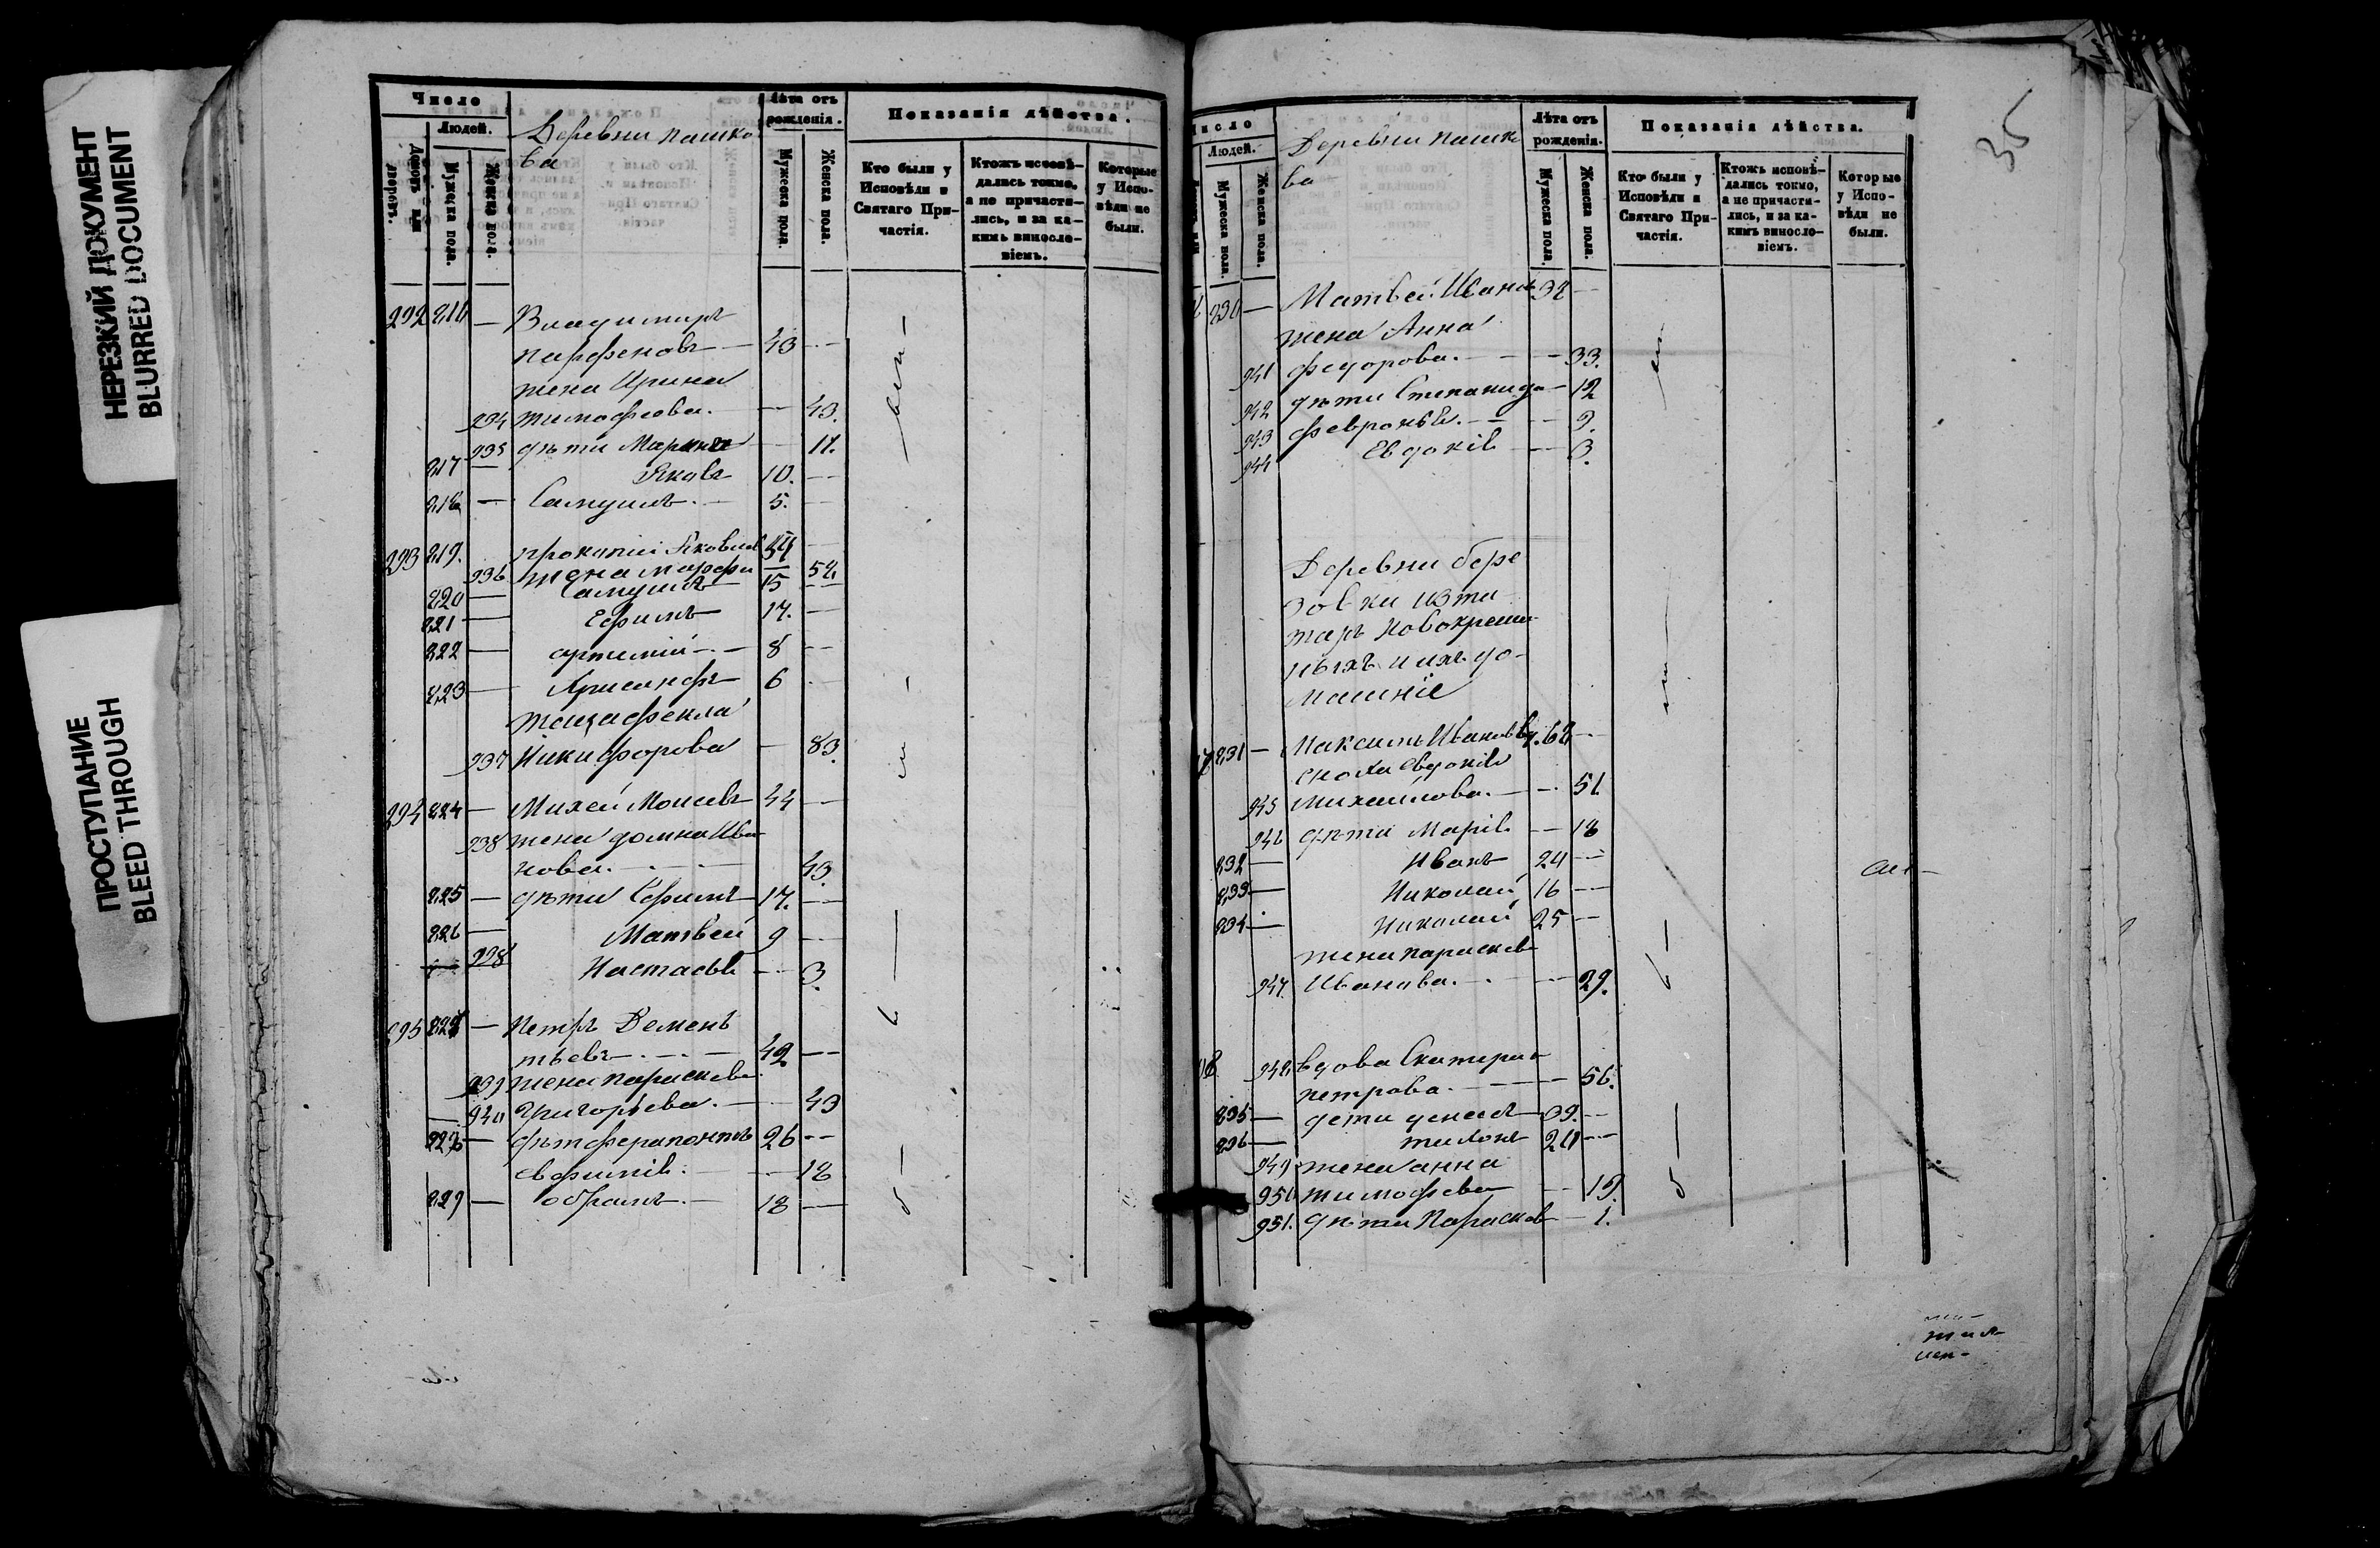 НЕРЕЗКИЙ ДОКУМЕНТ
BLURRED DOCUMENT
ПРОСТУПАНИЕ
BLEED THROUGH
Число
Людей.
Домовъ или дворовъ.
Мужеска пола.
Женска пола.
Деревни пашко
ва
Лѣта отъ рожденія.
Мужеска пола.
Женска пола.
Показанія дѣйства.
Кто были у Исповѣди и Святаго Причастія.
Ктожъ исповѣдались токмо, а не причастились, и за какимъ винословіемъ.
Которые у Исповѣди не были.
292 216 — Владимиръ
парфеновъ — 43 —
жена Ирина
934 тимофеова. — 43.
935 дѣти Марина — 11.
217 — Яковъ 10. —
218 — Самуилъ — 5. —
293 219. прокопій Яковлев 54 —
936 жена марфа — 52
220 — Самуилъ 15 —
221 — Ефимъ 17. —
222 — артимій — 8 —
223 — Хрисанфъ 6 —
теща фекла
937 Никифорова — 83.
294 224 — Михей Моисевъ 44 —
938 жена домна Ива
нова. — 43.
225 — дѣти Ефимъ 17. —
226 — Матвей 9 —
938 Настасья — 3.
295 — петръ Демень
тьевъ — 42 —
939 жена параскева
940 Григорьева. — 43
— дѣт ферапонтъ 26 —
евфимія — 18
229 — обрамъ — 18 —
35
Число
Людей.
Мужеска пола.
Женска пола.
Деревни пашк
ва
Лѣта отъ рожденія.
Мужеска пола.
Женска пола.
Показанія дѣйства.
Кто были у Исповѣди и Святаго Причастія.
Ктожъ исповѣдались токмо, а не причастились, и за какимъ винословіемъ.
Которые у Исповѣди не были.
230 — Матвей Иванов 32 —
жена Анна
941 федорова. — 33.
942 дѣти Степанида — 12
943 февронья. — 9.
944 Евдокія — 3.
Деревни бере
зовки изта
таръ новокреще
ныхъ ихъ до
машніе
231 — Максимъ Ивановъ 62 —
сноха Евдокія
945 михайлова. — 51
946 дѣти Марія — 18
232 — Иванъ 24 —
233 — Николай 16 —
234 — Николай 25 —
жена параскев
947. Иванова. — 29.
948 вдова Екатерина
петрова. — 56.
235 — дети денисъ 39. —
236 — тихонъ 20 —
949 жена анна
950 тимофева — 19.
951. дѣти Параскев — 1.